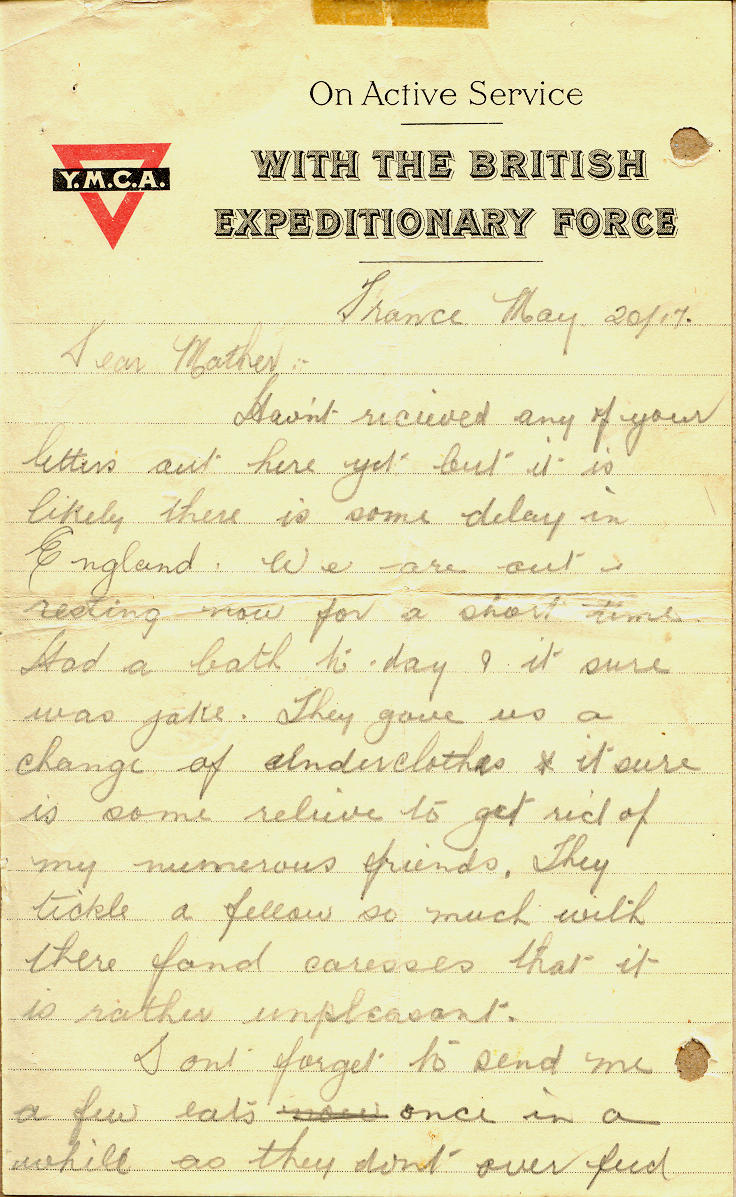 On Active Service
WITH THE BRITISH
EXPEDITIONARY FORCE
Y.M.C.A.
France May 20/17.
Dear Mother:-
Havn't recieved any of your
letters out here yet but it is
likely there is some delay in
England. We are out
resting now for a short time.
Had a bath to-day & it sure
was jake. They gave us a
change of underclothes & it sure
is some relieve to get rid of
my numerous friends. They
tickle a fellow so much with
there fond caresses that it
is rather unpleasant.
Dont forget to send me
a few eats now once in a
while as they dont over feed